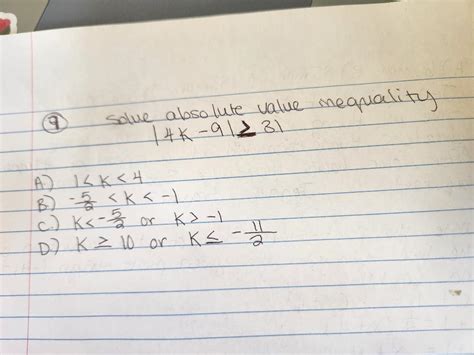 ⑨ Solve absolute value inequality
|4K - 9| ≥ 31
A) 1 < K < 4
B) -5/2 < K < -1
C.) K < -5/2 or K > -1
D) K ≥ 10 or K ≤ -11/2